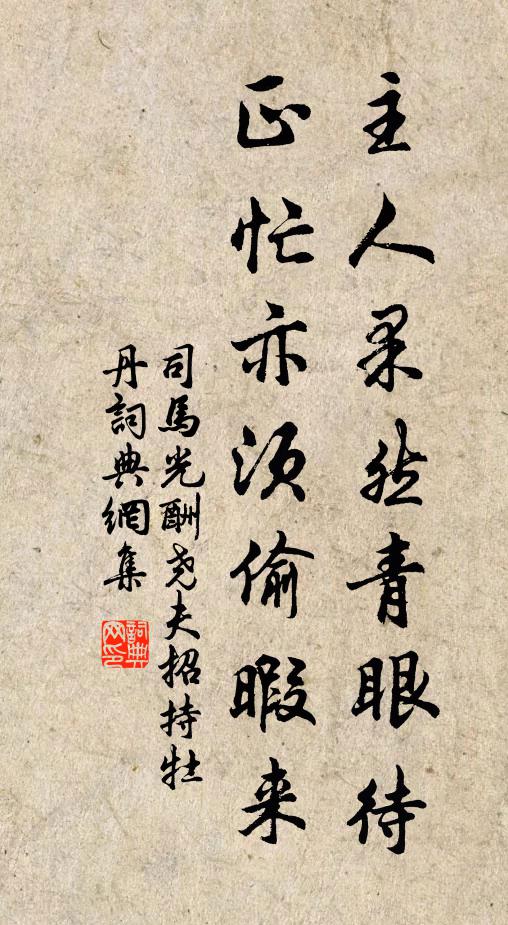 主人果然青眼待
正忙亦须偷暇来
司馬光酬尧夫招持牡
丹詞典網集
詞典
网印